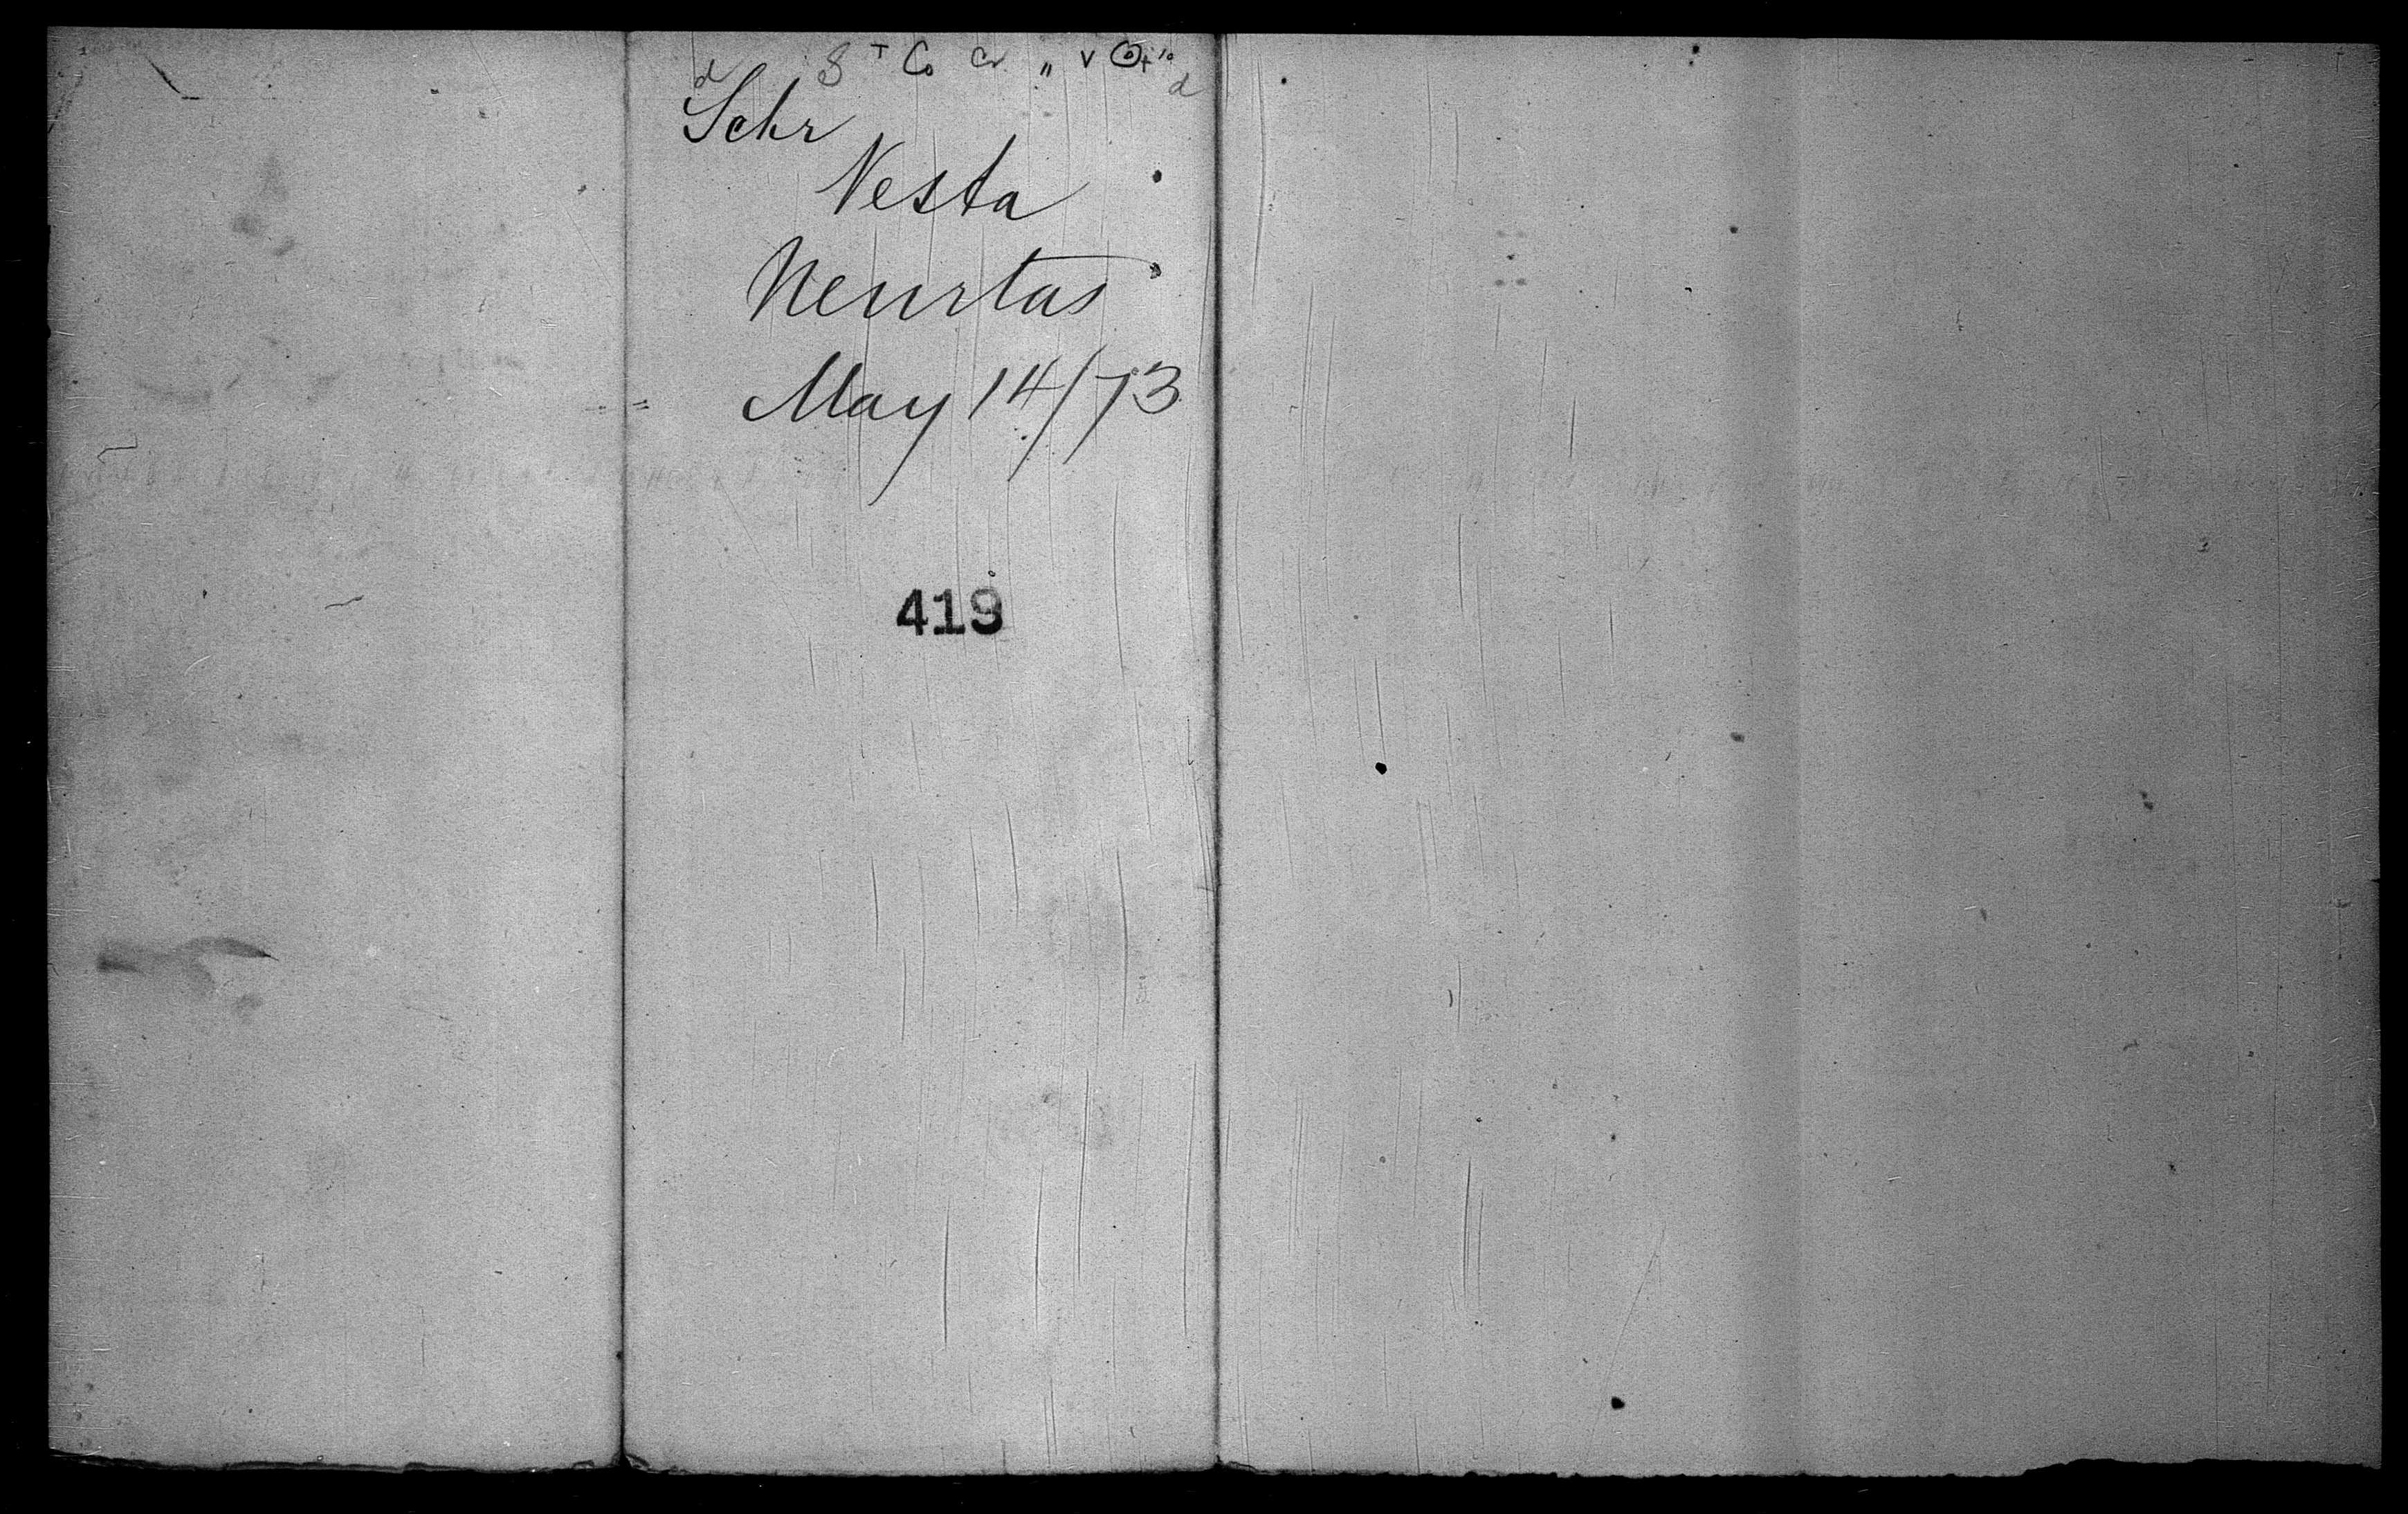 S T Co Cr " v
Schr
Vesta
May 14/73
419